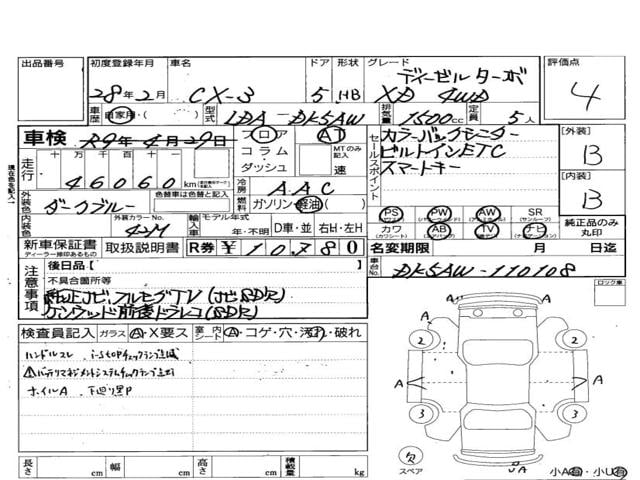 出品番号 初度登録年月 車名 ドア 形状 グレード 評価点
ディーゼルターボ
28年2月 CX-3 5 HB XD 4WD 4
車歴 自家用・( ) 型式 LDA-DK5AW 排気量 1500cc 定員 5人
車検 R9年4月29日 フロア AT カラーバックモニター [外装]
コラム・ MTのみ記入 ビルトインETC B
ダッシュ 速 スマートキー
現在色を記入
走行 十万 千 百 十 セールスポイント
46060 km 冷房 AAC [内装]
外装色 色替車は色替と記入 燃料 ガソリン 軽油 B
ダークブルー ( ) PS PW AW SR
(パワステ) (サンルーフ)
内装色 外装カラーNo. 42M 輸入車 モデル年式 カワ AB TV ナビ 純正品のみ丸印
年・不明 D車・並 右H・左H (カワシート) (エアバッグ)
新車保証書 取扱説明書 R券 ¥10780 名変期限 月 日迄
ディーラー捺印あるもの
注意事項 後日品[ ] 車台No. DK5AW-110108
不具合箇所等 ロック車
純正ナビ フルセグTV(ナビSD欠)
ケンウッド前後ドラレコ(SD欠)
検査員記入 ガラス A・X要ス 室内 シート A・コゲ・穴・汚れ・破れ
ハンドルスレ i-stopチェックランプ点滅
⚠バッテリマネジメントシステムチェックランプ点灯
ホイルA 下廻り黒P
A A
2 2
A A A
3 3
欠
スペア A
UA
長さ cm 幅 cm 高さ cm 積載量 kg 小A有・小U有